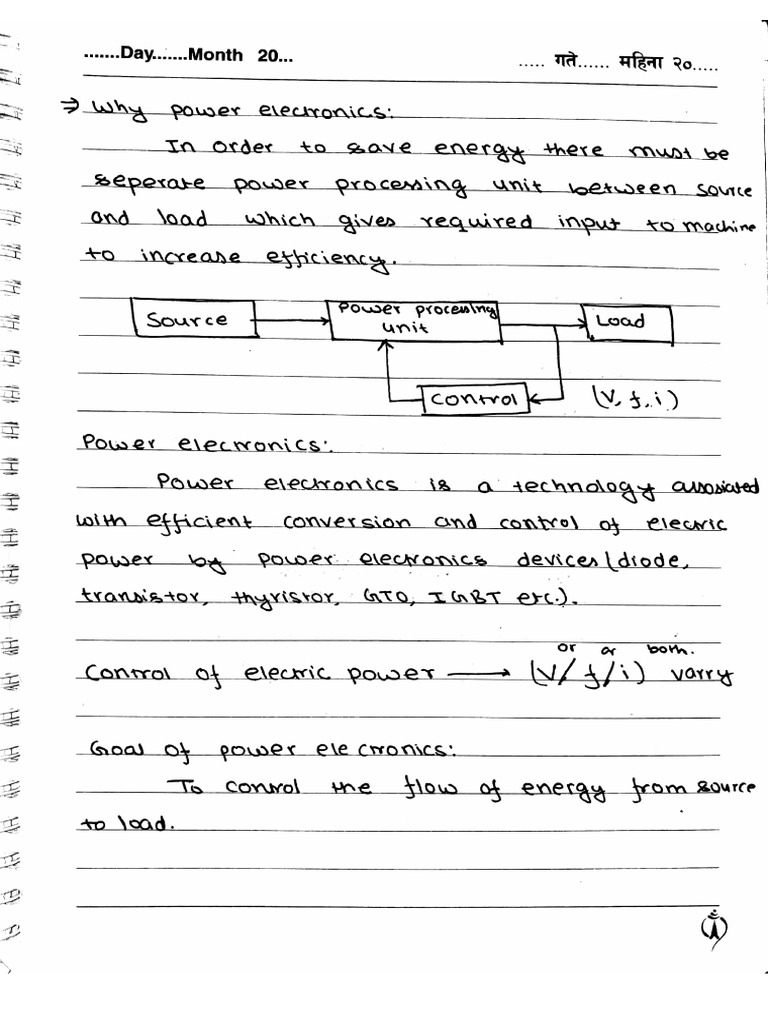 .......Day.......Month 20...
..... गते...... महिना २०.....
⇒ Why power electronics:
In order to save energy there must be
seperate power processing unit between source
and load which gives required input to machine
to increase efficiency.
Source
Power processing
unit
Load
Control
(V, f, i)
Power elecronics:
Power electronics is a technology assosiated
with efficient conversion and control of electric
power by power electronics devices (diode,
transistor, thyristor, GTO, IGBT etc.).
or or both.
Control of electric power → (V/f/i) varry
Goal of power electronics:
To control the flow of energy from source
to load.